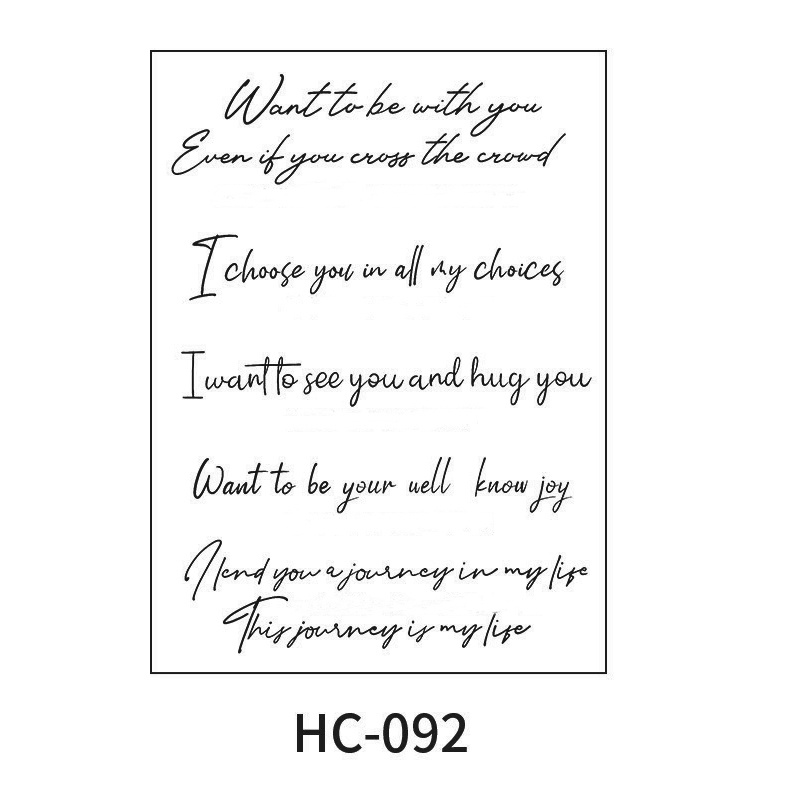 Want to be with you
Even if you cross the crowd
I choose you in all my choices
I want to see you and hug you
Want to be your well know joy
I lend you a journey in my life
This journey is my life
HC-092